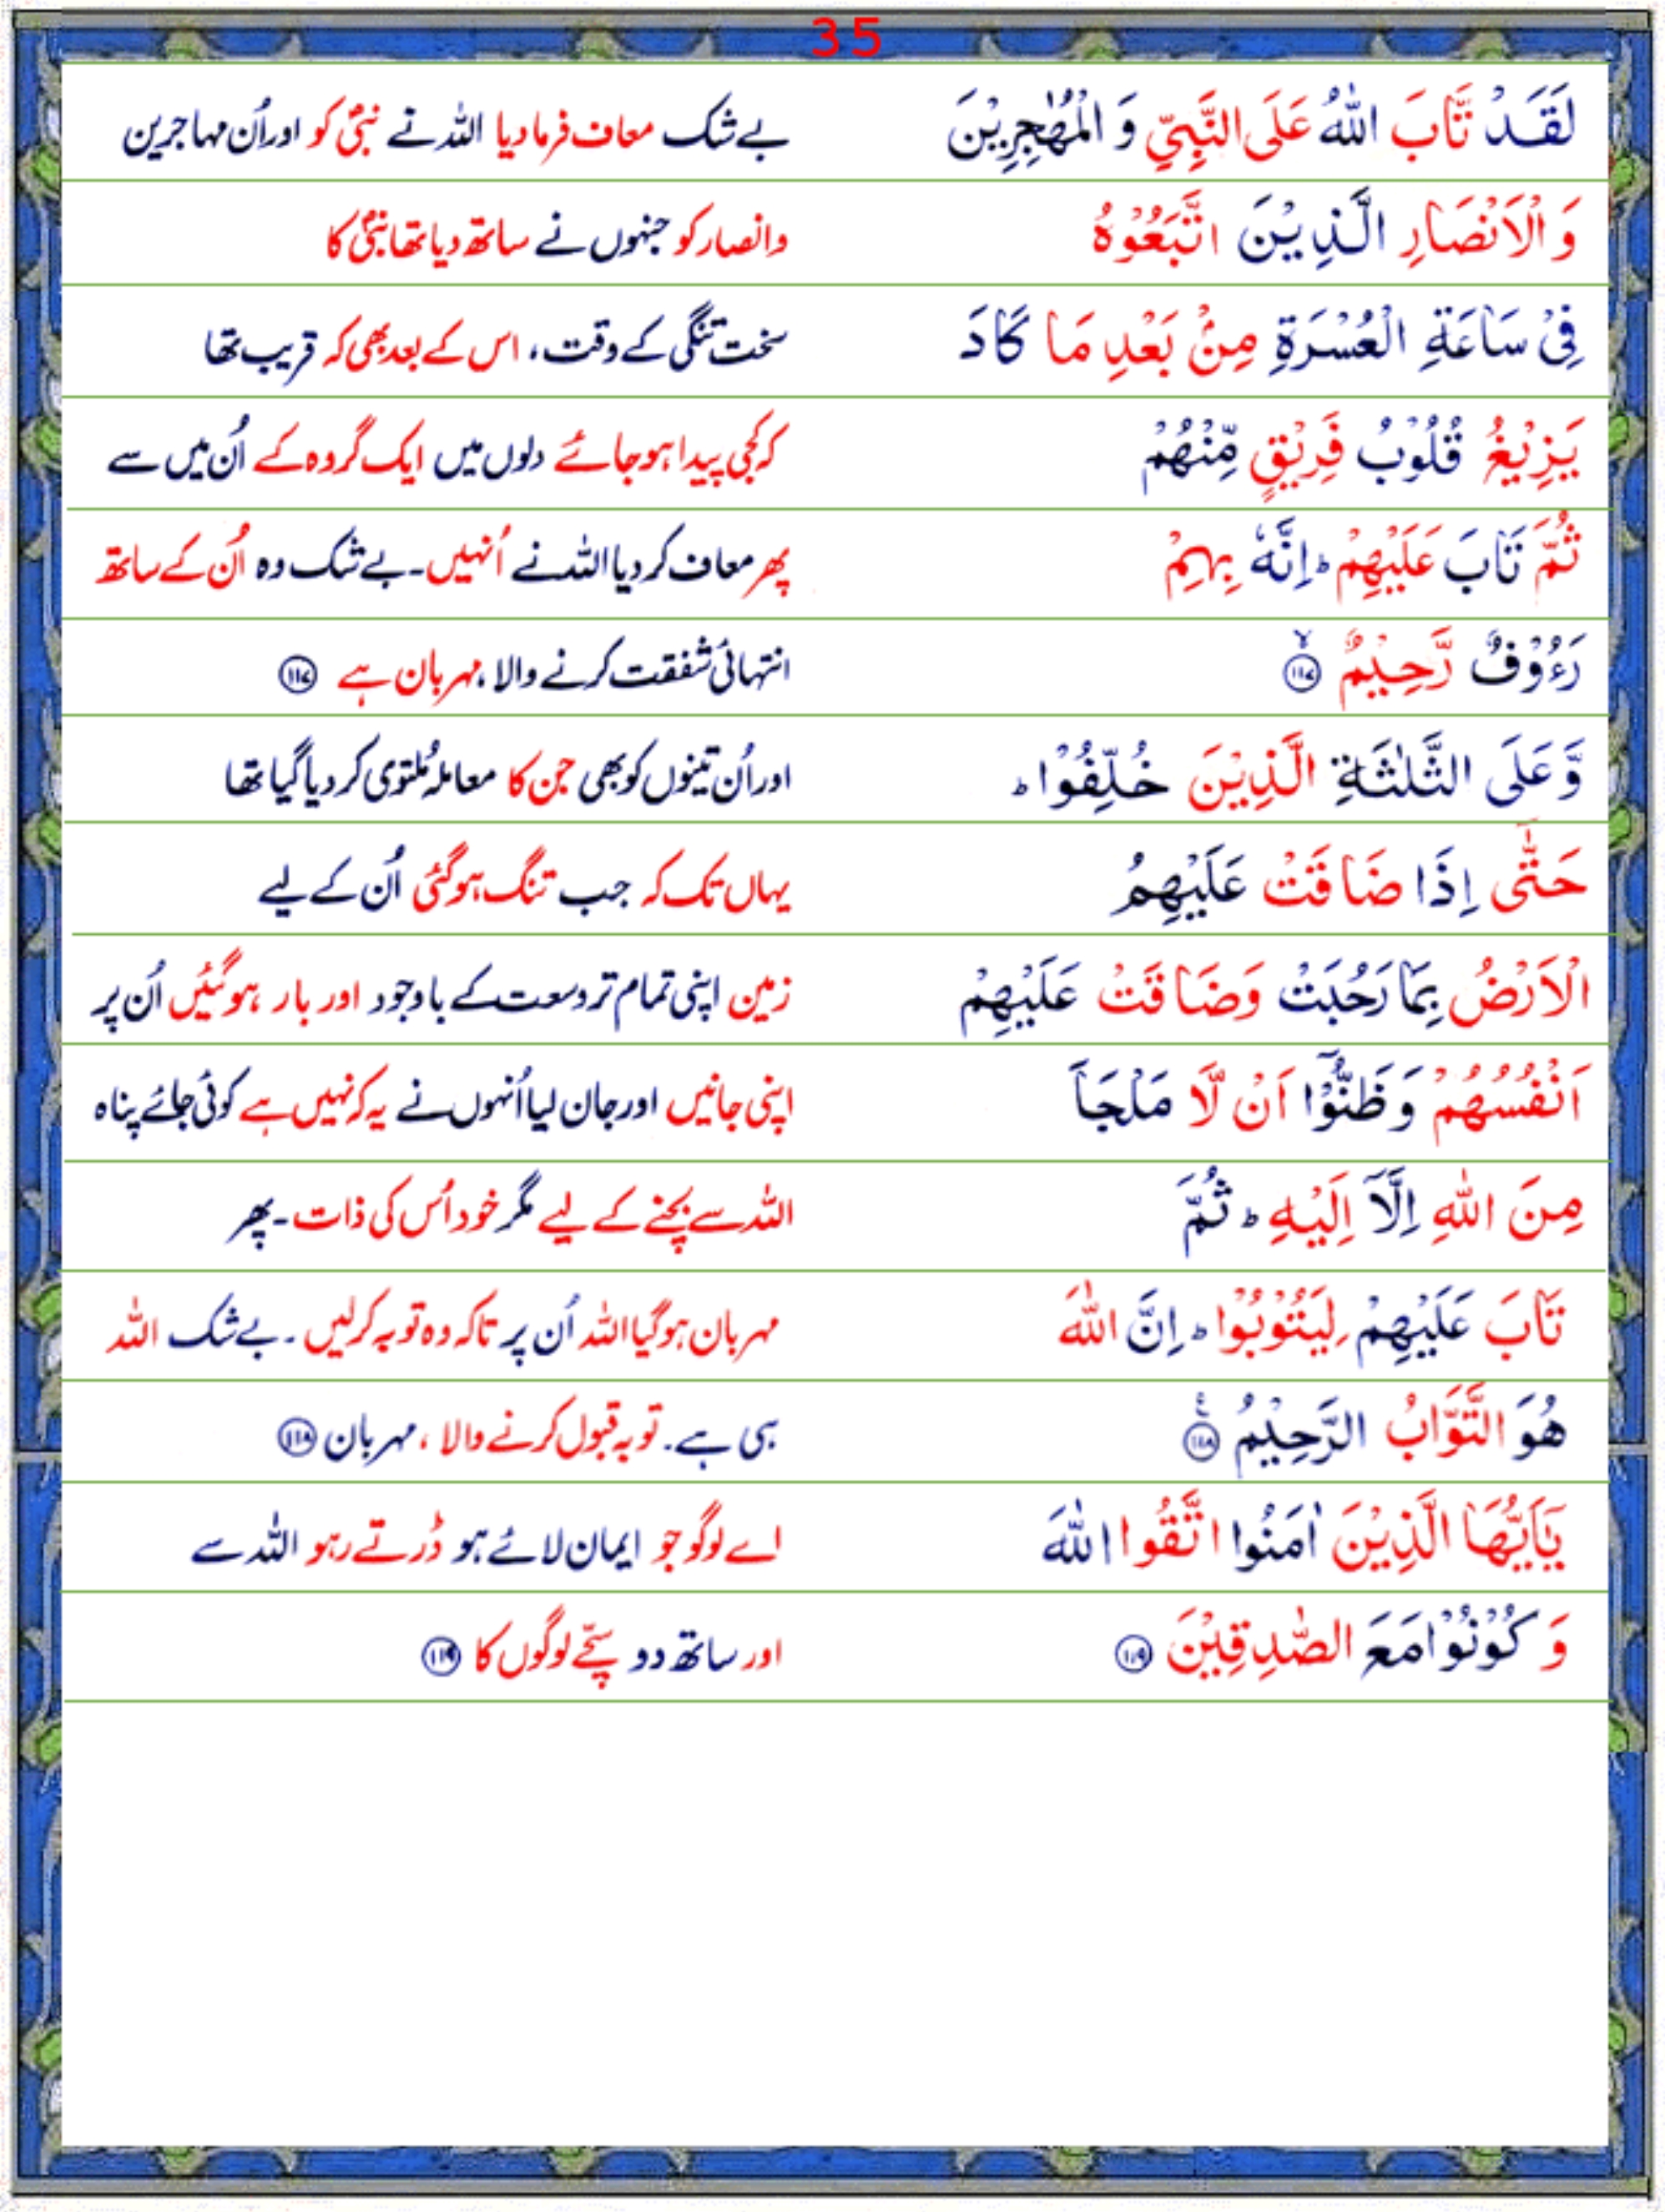 35
لَقَدْ تَّابَ اللّٰهُ عَلَى النَّبِيِّ وَ الْمُهٰجِرِيْنَ بے شک معاف فرمادیا اللہ نے نبیؐ کو اور اُن مہاجرین
وَ الْاَنْصَارِ الَّذِيْنَ اتَّبَعُوْهُ وانصار کو جنہوں نے ساتھ دیا تھا نبیؐ کا
فِيْ سَاعَةِ الْعُسْرَةِ مِنْۢ بَعْدِ مَا كَادَ سخت تنگی کے وقت، اس کے بعد بھی کہ قریب تھا
يَزِيْغُ قُلُوْبُ فَرِيْقٍ مِّنْهُمْ کہ کجی پیدا ہو جائے دلوں میں ایک گروہ کے اُن میں سے
ثُمَّ تَابَ عَلَيْهِمْ ؕ اِنَّهٗ بِهِمْ پھر معاف کر دیا اللہ نے اُنہیں۔ بے شک وہ اُن کے ساتھ
رَءُوْفٌ رَّحِيْمٌ ۙ ۱۱۷ انتہائی شفقت کرنے والا، مہربان ہے ۱۱۷
وَّ عَلَى الثَّلٰثَةِ الَّذِيْنَ خُلِّفُوْا ؕ اور اُن تینوں کو بھی جن کا معاملہ مُلتوی کر دیا گیا تھا
حَتّٰۤى اِذَا ضَاقَتْ عَلَيْهِمُ یہاں تک کہ جب تنگ ہو گئی اُن کے لیے
الْاَرْضُ بِمَا رَحُبَتْ وَضَاقَتْ عَلَيْهِمْ زمین اپنی تمام تر وسعت کے باوجود اور بار ہو گئیں اُن پر
اَنْفُسُهُمْ وَ ظَنُّوْۤا اَنْ لَّا مَلْجَاَ اپنی جانیں اور جان لیا اُنہوں نے یہ کہ نہیں ہے کوئی جائے پناہ
مِنَ اللّٰهِ اِلَّاۤ اِلَيْهِ ؕ ثُمَّ اللہ سے بچنے کے لیے مگر خود اُس کی ذات۔ پھر
تَابَ عَلَيْهِمْ لِيَتُوْبُوْا ؕ اِنَّ اللّٰهَ مہربان ہو گیا اللہ اُن پر تاکہ وہ توبہ کرلیں۔ بے شک اللہ
هُوَ التَّوَّابُ الرَّحِيْمُ ۱۱۸ ع ہی ہے۔ توبہ قبول کرنے والا، مہربان ۱۱۸
يٰۤاَيُّهَا الَّذِيْنَ اٰمَنُوا اتَّقُوا اللّٰهَ اے لوگو جو ایمان لائے ہو ڈرتے رہو اللہ سے
وَ كُوْنُوْا مَعَ الصّٰدِقِيْنَ ۱۱۹ اور ساتھ دو سچّے لوگوں کا ۱۱۹